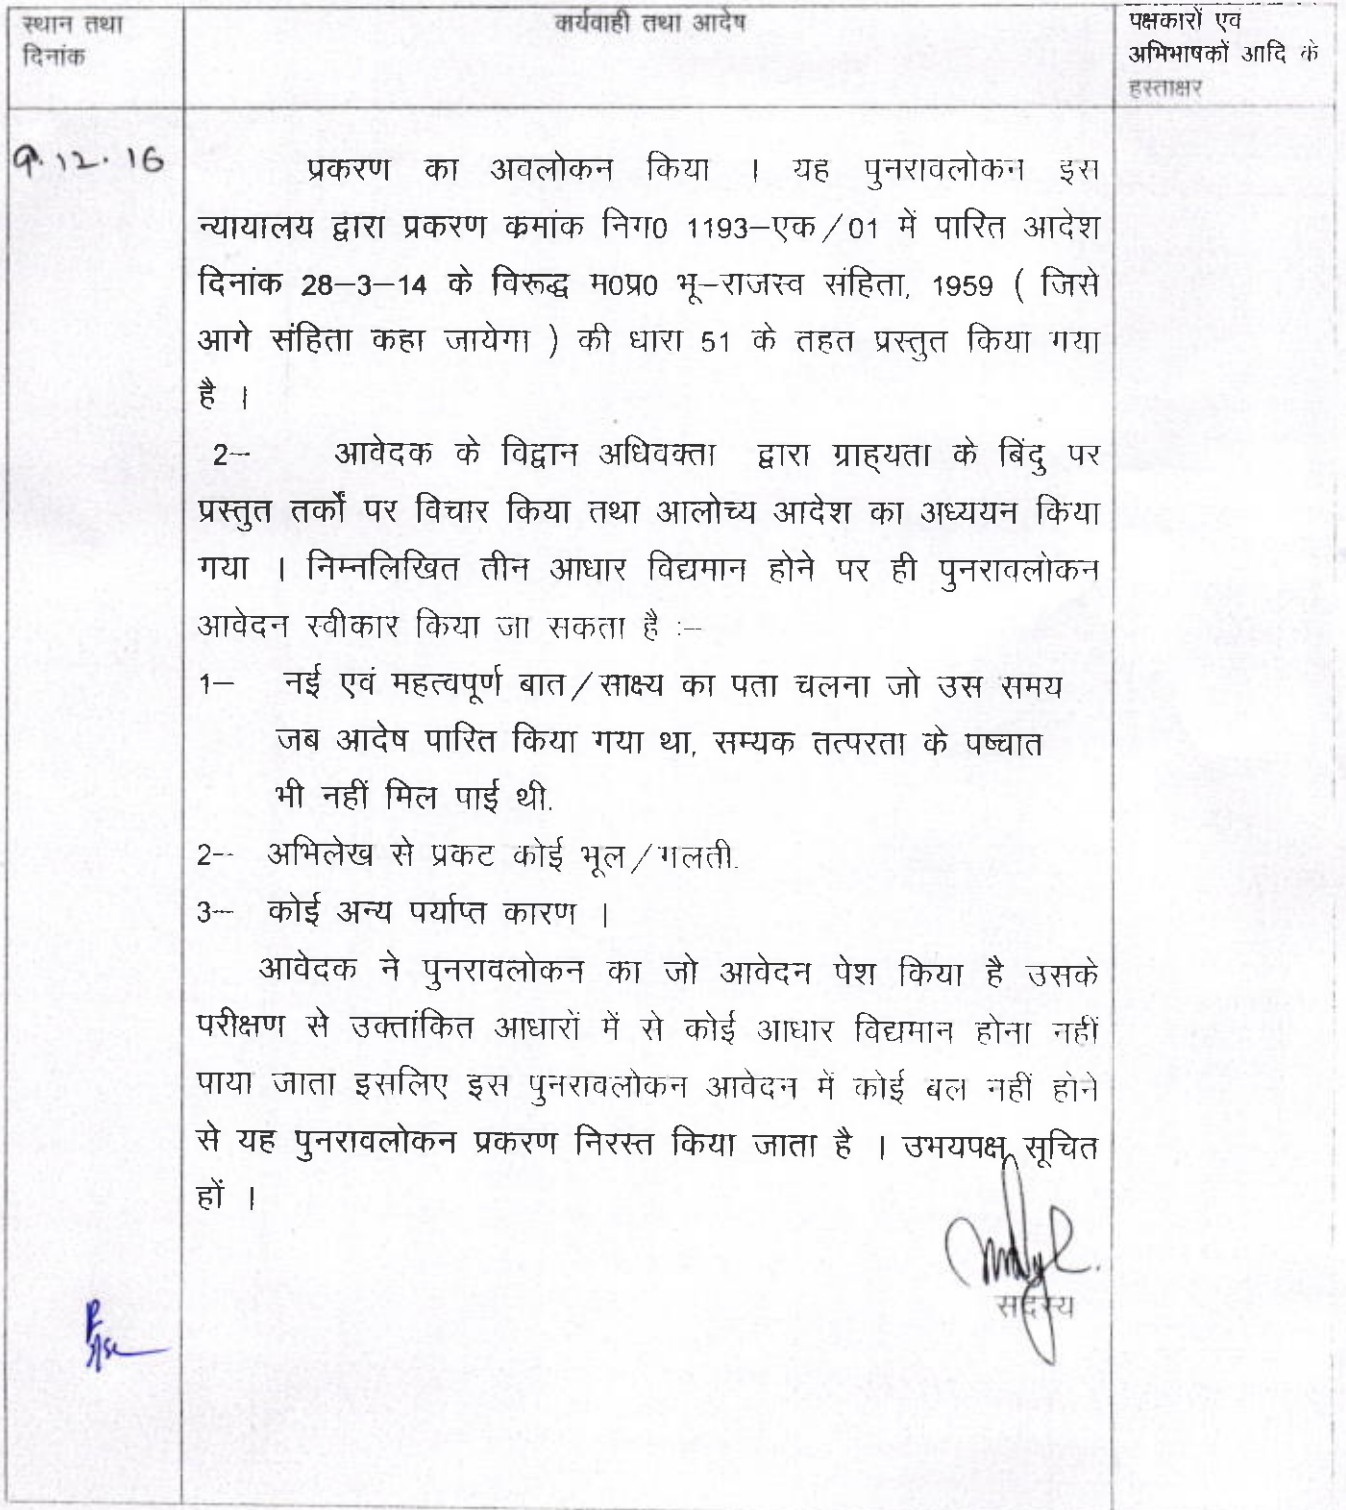 स्थान तथा
दिनांक
कार्यवाही तथा आदेष
पक्षकारों एवं
अभिभाषकों आदि के
हस्ताक्षर
9.12.16
प्रकरण का अवलोकन किया । यह पुनरावलोकन इस
न्यायालय द्वारा प्रकरण कमांक निग0 1193–एक/01 में पारित आदेश
दिनांक 28–3–14 के विरूद्ध म0प्र0 भू–राजस्व संहिता, 1959 ( जिसे
आगे संहिता कहा जायेगा ) की धारा 51 के तहत प्रस्तुत किया गया
है ।
2– आवेदक के विद्वान अधिवक्ता द्वारा ग्राह्यता के बिंदु पर
प्रस्तुत तर्कों पर विचार किया तथा आलोच्य आदेश का अध्ययन किया
गया । निम्नलिखित तीन आधार विद्यमान होने पर ही पुनरावलोकन
आवेदन स्वीकार किया जा सकता है :–
1– नई एवं महत्वपूर्ण बात/साक्ष्य का पता चलना जो उस समय
जब आदेष पारित किया गया था, सम्यक तत्परता के पष्चात
भी नहीं मिल पाई थी.
2– अभिलेख से प्रकट कोई भूल/गलती.
3– कोई अन्य पर्याप्त कारण ।
आवेदक ने पुनरावलोकन का जो आवेदन पेश किया है उसके
परीक्षण से उक्तांकित आधारों में से कोई आधार विद्यमान होना नहीं
पाया जाता इसलिए इस पुनरावलोकन आवेदन में कोई बल नहीं होने
से यह पुनरावलोकन प्रकरण निरस्त किया जाता है । उभयपक्ष सूचित
हों ।
सदस्य